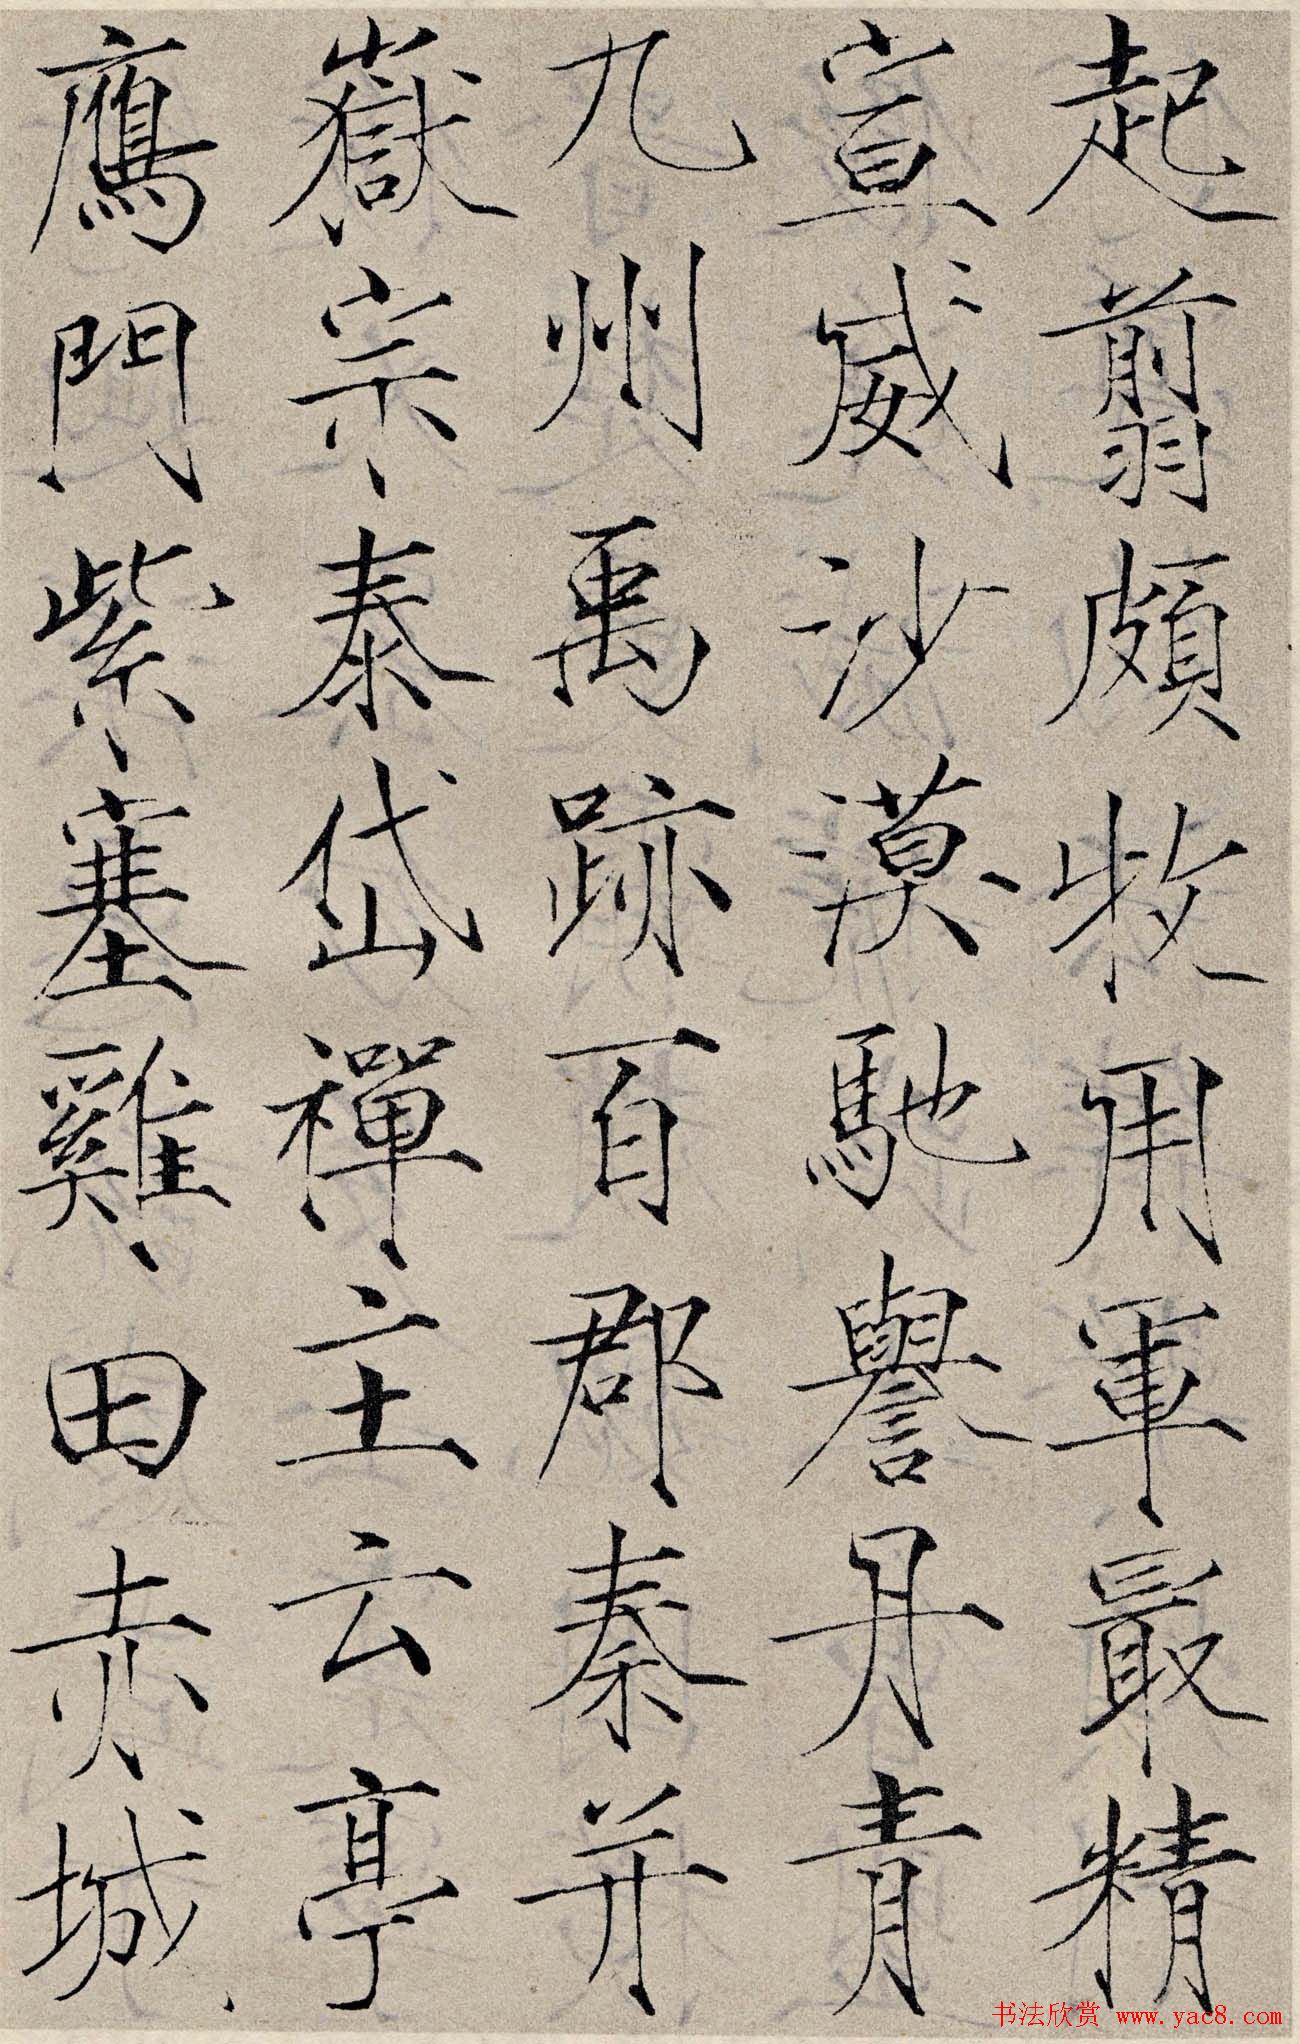 起翦頗牧用軍最精
宣威沙漠馳譽丹青
九州禹跡百郡秦并
嶽宗泰岱禪主云亭
鴈門紫塞雞田赤城
书法欣赏 www.yac8.com